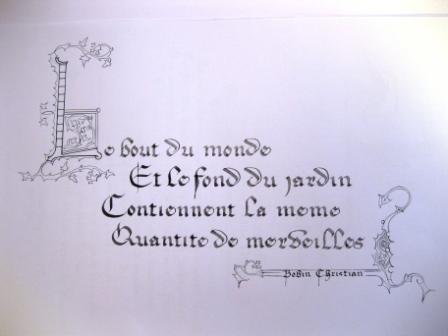 Le bout du monde
Et le fond du jardin
Contiennent la meme
Quantite de merveilles
Bobin Christian